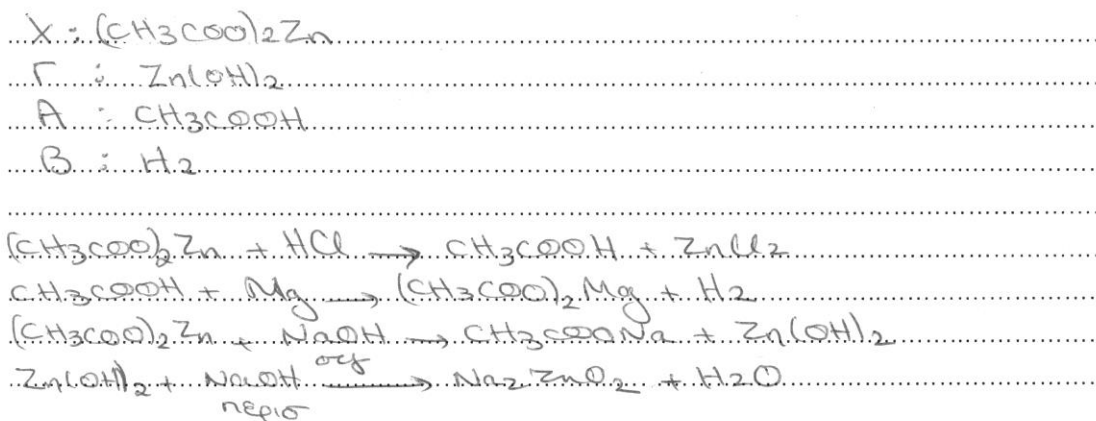 X : (CH3COO)2Zn
Γ : Zn(OH)2
A : CH3COOH
B : H2
(CH3COO)2Zn + HCl → CH3COOH + ZnCl2
CH3COOH + Mg → (CH3COO)2Mg + H2
(CH3COO)2Zn + NaOH → CH3COONa + Zn(OH)2
Zn(OH)2 + NaOH → Na2ZnO2 + H2O
περισ